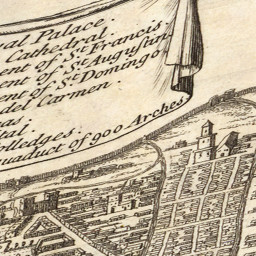 val Palace.
Cathedral.
ent of St. Francis
ent of St. Augustin
ent of St. Domingo
del Carmen.
as.
tal.
olledges.
uaduct of 900 Arches